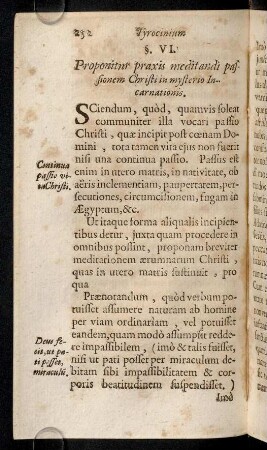 232 Tyrocinium
§. VI.
Proponitur praxis meditandi pas-
sionem Christi in mysterio In-
carnationis.
SCiendum, quòd, quamvis soleat
communiter illa vocari passio
Christi, quæ incipit post cœnam Do-
mini, tota tamen vita ejus non fuerit
nisi una continua passio. Passus est
enim in utero matris, in nativitate, ob
aëris inclementiam, paupertatem, per-
secutiones, circumcisionem, fugam in
Ægyptum, &c.
Continua
passio vi-
ta Christi.
Ut itaque forma aliqualis incipien-
tibus detur, juxta quam procedere in
omnibus possint, proponam breviter
meditationem ærumnarum Christi,
quas in utero matris sustinuit, pro
qua
Prænotandum, quòd verbum po-
tuisset assumere naturam ab homine
per viam ordinariam, vel potuisset
eandem, quam modò assumpsit redde-
re impassibilem, (imò & talis fuisset,
nisi ut pati posset per miraculum de-
bitam sibi impassibilitatem & cor-
poris beatitudinem suspendisset.)
Deus fe-
cit, ut pa-
ti posset,
miraculũ,
imò